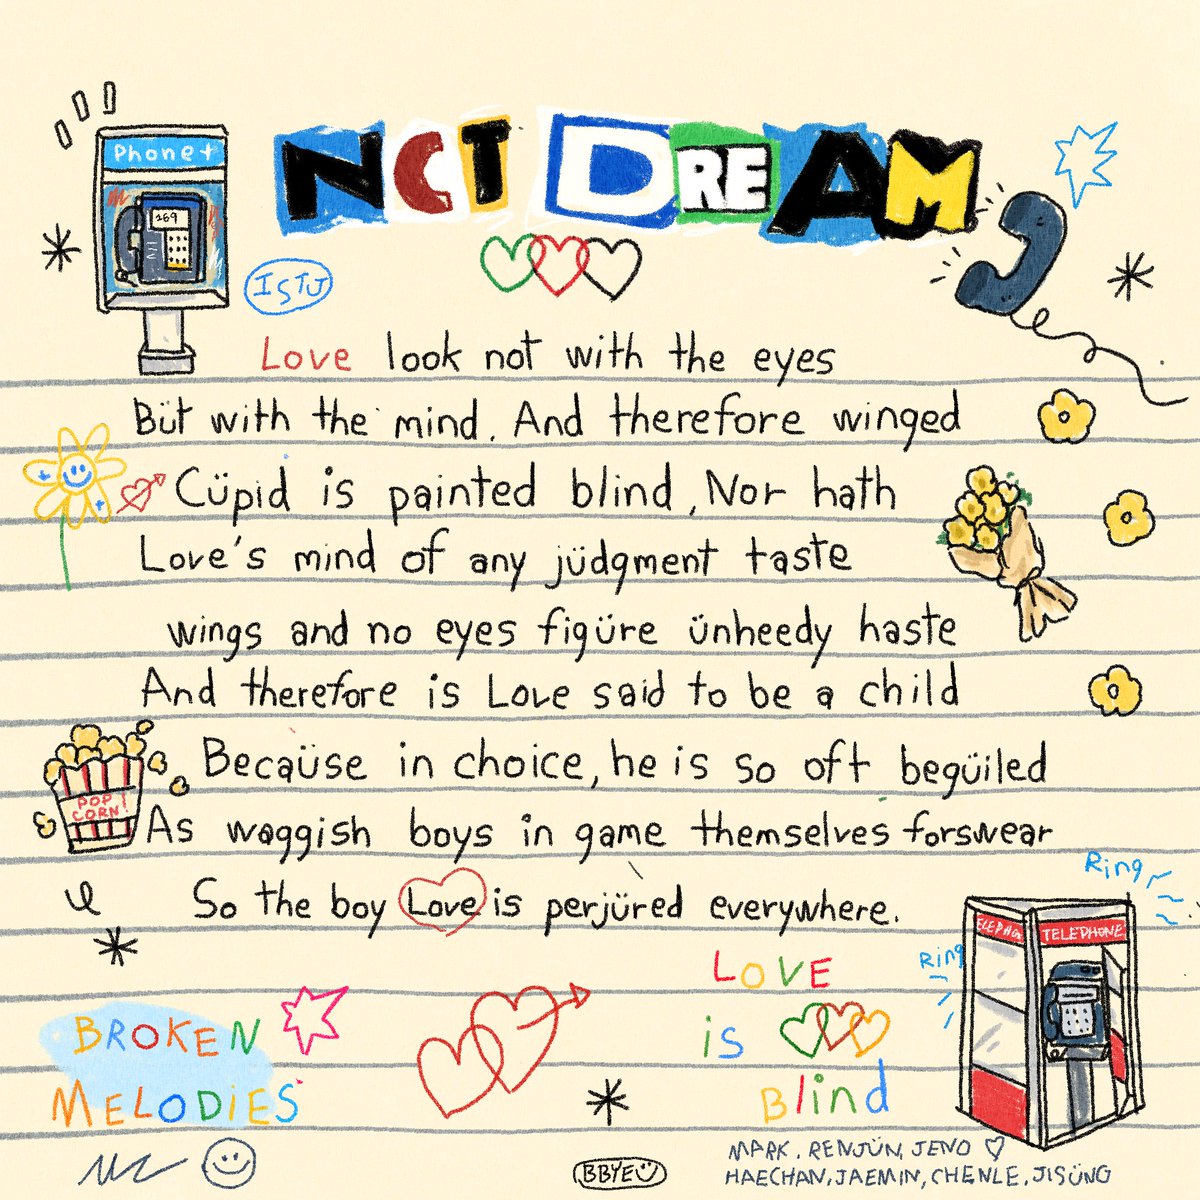 Phone+
169
NCT DREAM
ISTJ
Love look not with the eyes
Büt with the mind. And therefore winged
Cüpid is painted blind, Nor hath
Love's mind of any jüdgment taste
wings and no eyes figüre ünheedy haste
And therefore is Love said to be a child
Becaüse in choice, he is so oft begüiled
As waggish boys in game themselves forswear
So the boy Love is perjüred everywhere.
POP
CORN!
Ring
Ring
ELEPHO
TELEPHONE
LOVE
is
Blind
BROKEN
MELODIES
BBYEÜ
MARK, RENJÜN, JENO ♡
HAECHAN, JAEMIN, CHENLE, JISÜNG